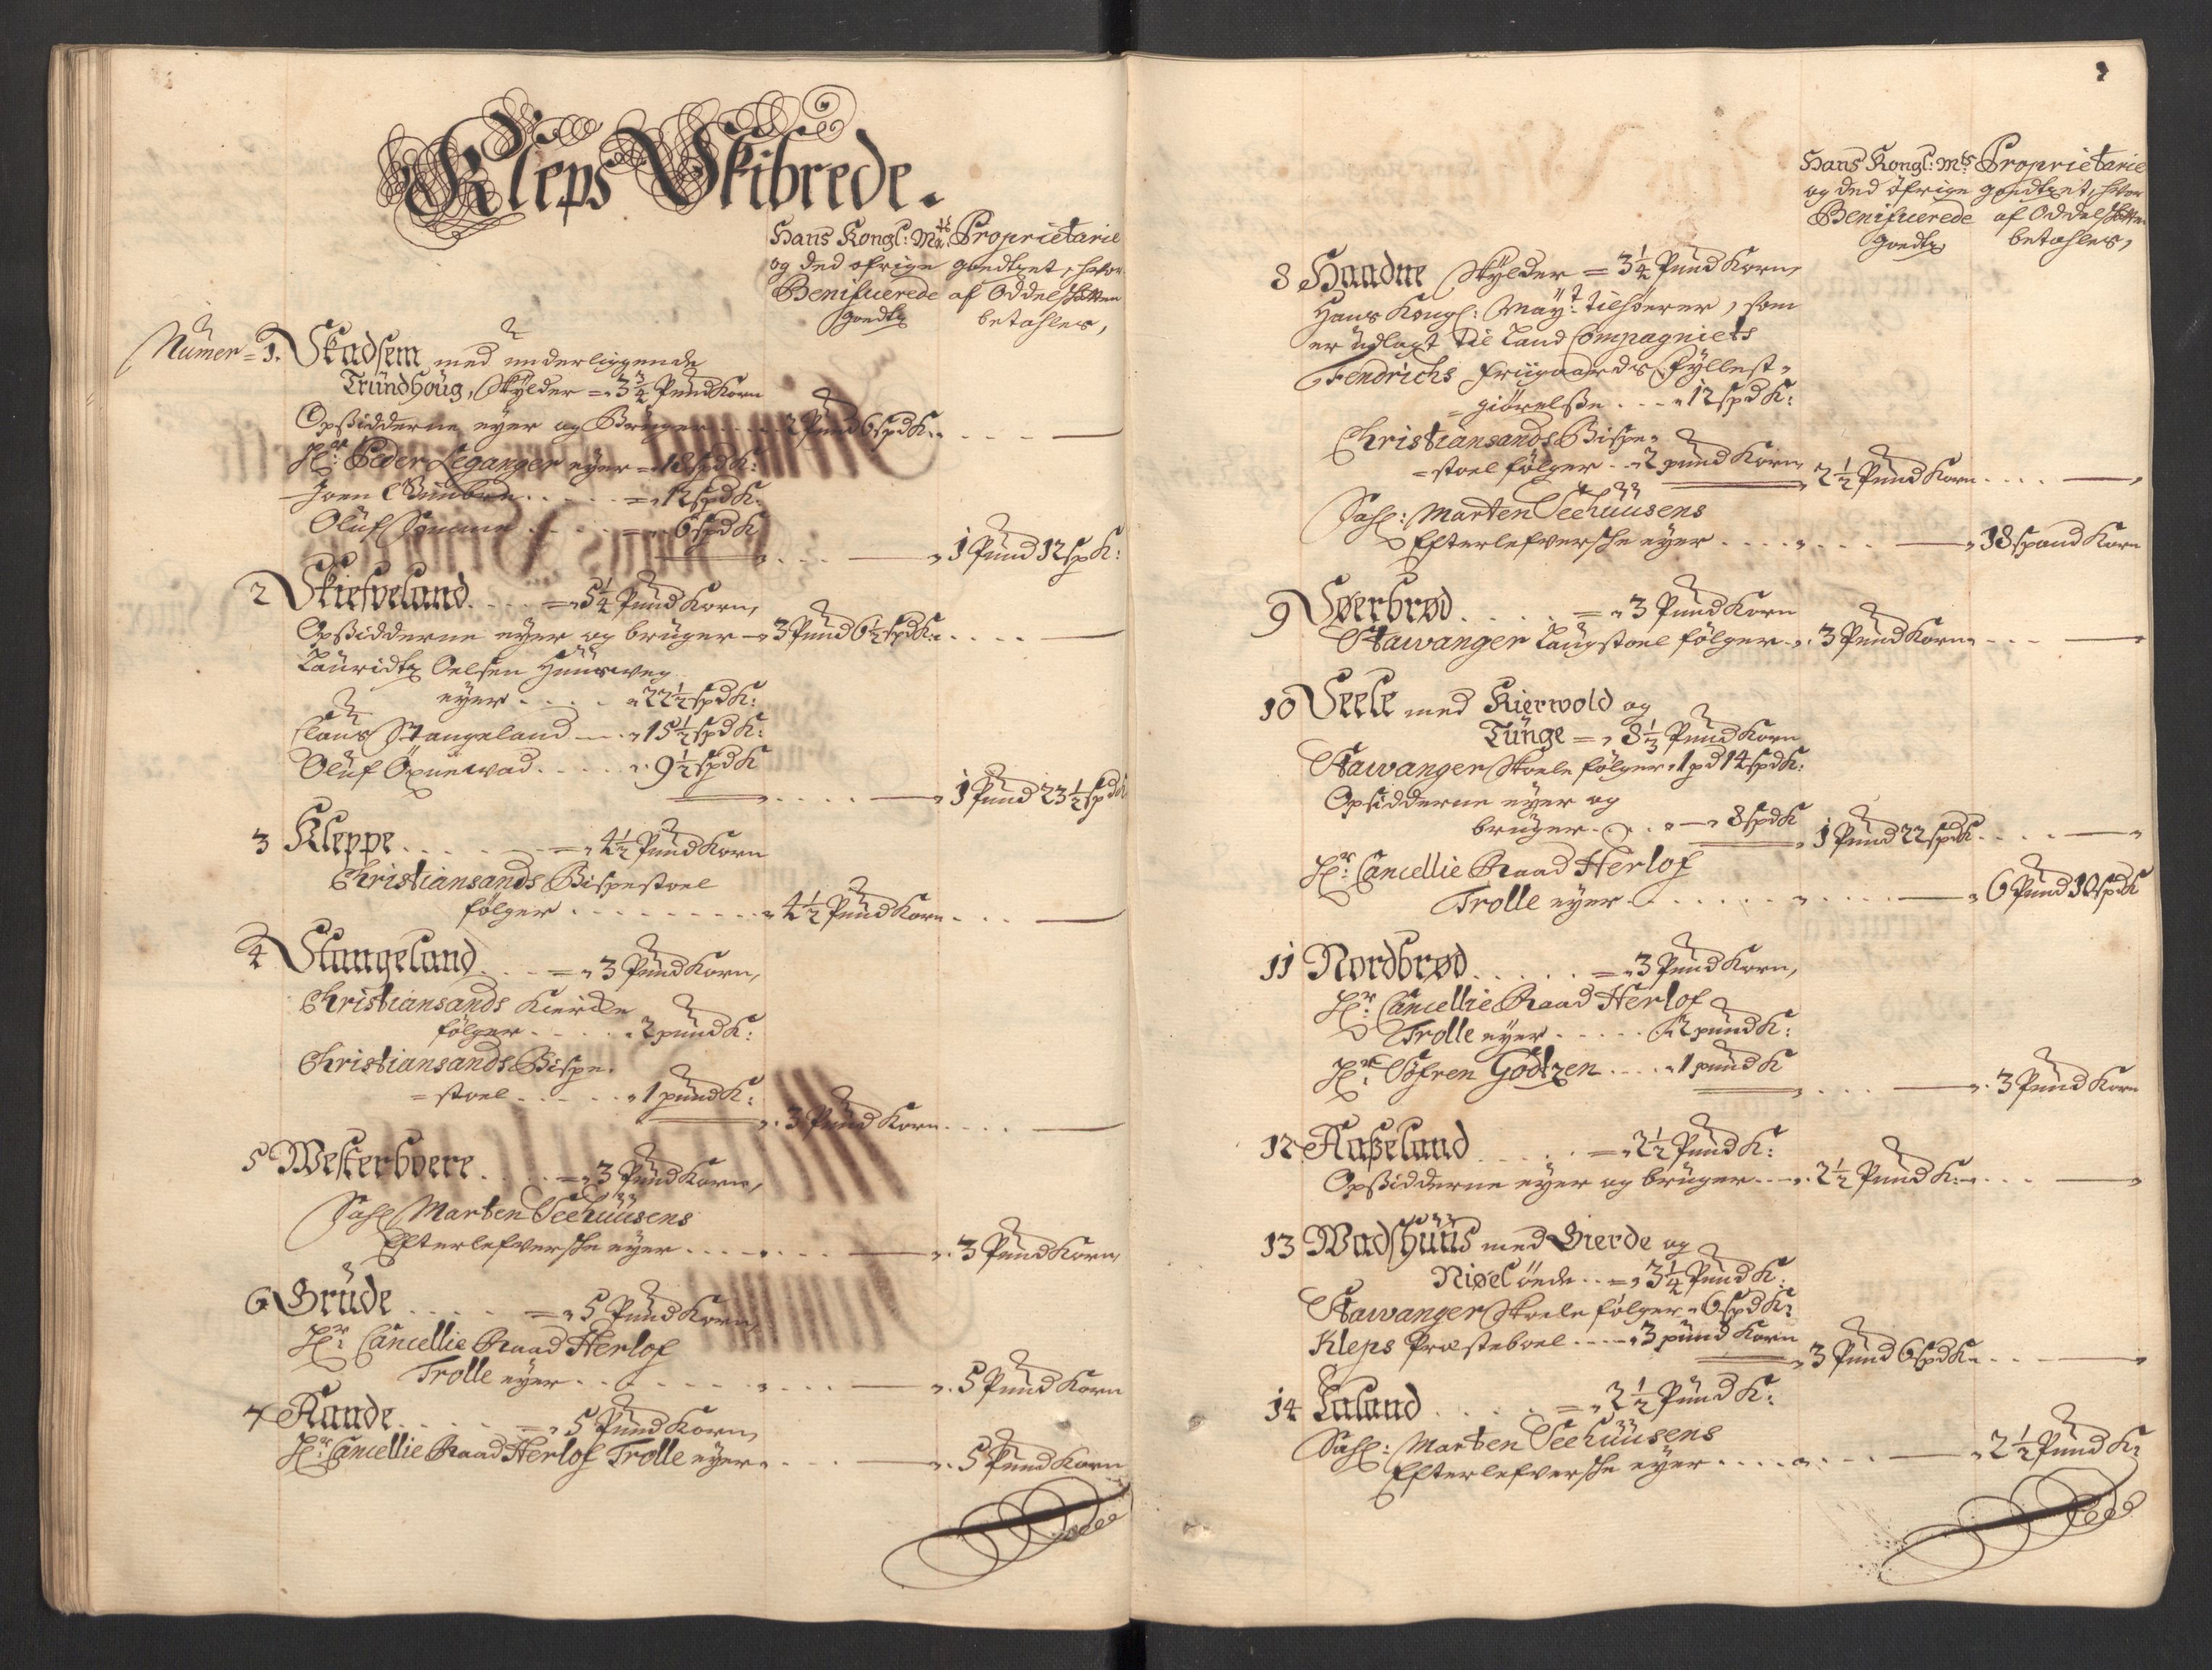 Kleps Skibrede.
Hans Kongl: Mats Proprietarie
og ded øfrige goedtzet, hvor
Benificerede af Oddelskatten
goedtz betahles,
Numer = 1. Skadsem med underliggende
Tründhoüg, skylder = 3 3/4 Pund Korn
Opsidderne eyer og Brüger .... 2 Pund 6 spd K: ....
Hr: Peder Leganger eyer = 18 spd K:
Joen ..... = 12 spd K:
Olüf Somme ..... = 6 spd K
.... 1 Pund 12 sp K:
2 Skiefveland .... = 5 1/4 Pund Korn,
Opsidderne eyer og brüger 3 Pund 6 1/2 spd K: ....
Lauridtz Oelsen
eyer .... 22 1/2 spd K:
Claus Stangeland .... 15 1/2 spd K:
Olüf Opüewad ..... 9 1/2 spd K
.... 1 Pund 23 1/2 spd K
3 Kleppe ..... = 4 1/2 Pund Korn
Christiansands Bispestoel
følger ......... 4 1/2 Pund Korn ....
4 Stangeland .... = 3 Pund Korn,
Christiansands Kiercke
følger ..... 2 pund K:
Christiansands Bispe-
= stoel ..... 1 pund K:
3 Pund Korn ....
5 Westerboere .... = 3 Pund Korn,
Sahl Marten Seehuusens
Efterlefversche eyer ....... 3 Pund Korn,
6 Grüde ..... = 5 Pund Korn,
Hr: Cancellie Raad Herlof
Trolle eyer ......... 5 Pund Korn
7 Rande ..... = 5 Pund Korn,
Hr: Cancellie Raad Herlof Trolle eyer .... 5 Pund Korn
Hans Kongl: Mts Proprietarie
og ded øfrige goedtzet, hvor
Benificerede af Oddelskatten
goedtz betahles,
8 Haadne skylder = 3 1/4 Pund Korn,
Hans Kongl: Mayt: tilhöerer, som
er udlagt til Land Compagniets
Fendrichs friigaards fyllest-
= giörelsse .... 12 spd K:
Christiansands Bispe-
= stoel følger .. 2 pund Korn, 2 1/2 Pund Korn ....
Sahl: Marten Seehuusens
Efterlefversche eyer ....... 18 spand Korn
9 Søerbrød ..... = 3 Pund Korn
Stawanger Laugstoel følger .. 3 Pund Korn ...
10 Seele med Kierwold og
Tünge = 8 1/3 Pund Korn
Stawanger Skoele følger 1 pd 14 spd K:
Opsidderne eyer og
brüger .... 8 spd K 1 Pund 22 spd K ....
Hr: Cancellie Raad Herlof
Trolle eyer .......... 6 Pund 10 spd K
11 Nordbrød ..... = 3 Pund Korn,
Hr: Cancellie Raad Herlof
Trolle eyer ..... 2 pund K:
Hr: Søfren Godtzen .... 1 pund K
.... 3 Pund Korn
12 Raßeland ..... = 2 1/2 Pund K:
Opsidderne eyer og brüger ... 2 1/2 Pund K: ...
13 Wadshüüs med Gierde og
Niøel öede .. = 3 1/4 Pund K:
Stawanger Skoele følger 6 spd K:
Kleps Præsteboel .... 3 pund Korn
3 Pund 6 spd K ...
14 Laland ..... = 2 1/2 Pund K:
Sahl: Marten Seehuusens
Efterlefversche eyer ....... 2 1/2 Pund K: